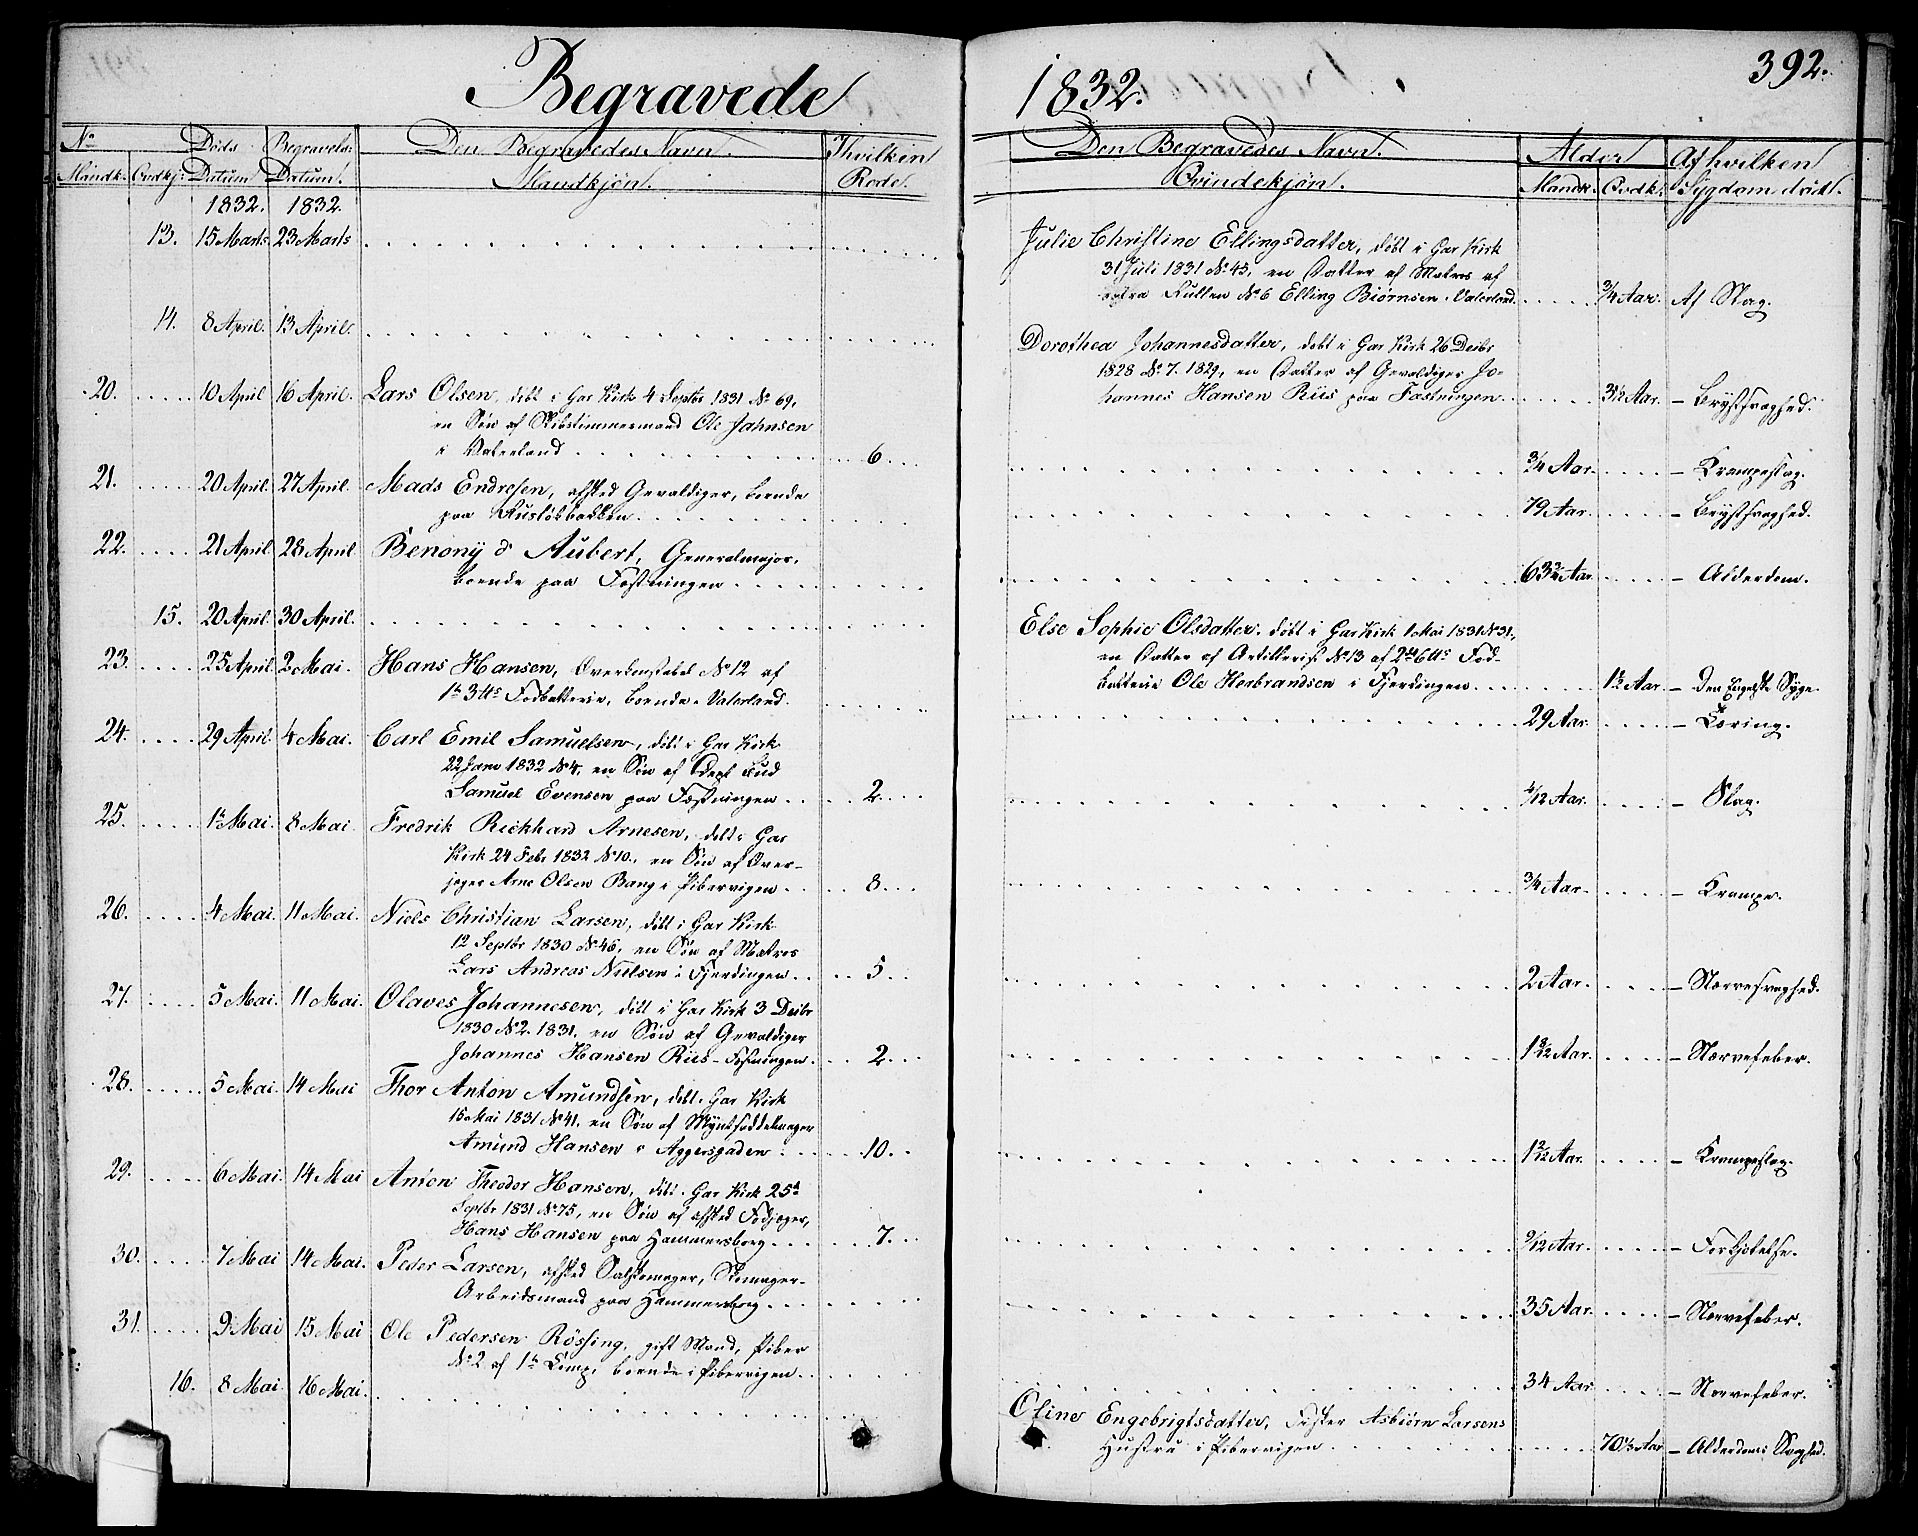 Begravede
1832.
392.
No
Døds
Begravels:
Den Begravedes Navn.
I hvilken
Mandk.
Qvdkj.
Datum
Datum.
Mandkjøn.
Rode.
1832.
1832.
13. 15 Marts 23 Marts
14. 8 April. 13 April.
20. 10 April 16 April. Lars Olsen, døbt i Gar Kirk 4 Septbr 1831 No 69,
en Søn af Skibstimmermand Ole Johnsen
i Vaterland 6
21. 20 April. 27 April. Mads Endresen, afsked Gevaldiger, boende
paa Ruseløkbakken
22. 21 April 28 April Benony d'Aubert, Generalmajor,
boende paa Fæstningen
15. 20 April. 30 April.
23. 25 April. 2 Mai. Hans Hansen, Overkonstabel No 12 af
Fodbatterie, boende i Vaterland.
24. 29 April 4 Mai. Carl Emil Samuelsen, døbt i Gar Kirk
22 Janr 1832 No 4, en Søn af
Samuel Evensen paa Fæstningen 2
25. 1te Mai. 8 Mai. Fredrik Rickhard Arnesen, døbt i Gar
Kirk 24 Febr 1832 No 10, en Søn af Over-
jæger Arne Olsen Bang i Pibervigen 8
26. 4 Mai. 11 Mai. Niels Christian Larsen, døbt i Gar Kirk
12 Septbr 1830 No 46, en Søn af Matros
Lars Andreas Nielsen i Fjerdingen 5
27. 5 Mai. 11 Mai. Olaves Johannesen, døbt i Gar Kirk 3 Decbr
1830 No 2. 1831. en Søn af Gevaldiger
Johannes Hansen Riis - Fæstningen 2
28. 5 Mai. 14 Mai Thor Anton Amundsen, døbt i Gar Kirk
15 Mai 1831 No 41. en Søn af
Amund Hansen i Aggersgaden 10
29. 6 Mai. 14 Mai Anton Theodor Hansen, døbt i Gar Kirk 25de
Septbr 1831 No 75, en Søn af afsked Fodjæger,
Hans Hansen paa Hammersborg 7.
30. 7 Mai 14 Mai. Peder Larsen, afsked Skomager-
Arbeidsmand paa Hammersborg
31. 9 Mai 15 Mai Ole Pedersen Røssing, gift Mand, Piber
No 2 af 1te Comp, boende i Pibervigen
16. 8 Mai 16 Mai.
Den Begravedes Navn.
Alder
Af hvilken
Qvindekjøn.
Mandk.
Qvdk.
Sygdom død.
Julie Christine Ellingsdatter, døbt i Gar Kirk
31 Juli 1831 No 45, en Datter af Matros af
extra Rullen No 6 Elling Biørnsen i Vaterland 3/4 Aar. Af Slag.
Dorothea Johannesdatter, døbt i Gar Kirk 26 Decbr
1828 No 7. 1829, en Datter af Gevaldiger Jo-
hannes Hansen Riis paa Fæstningen 3 1/2 Aar. - Brystsvaghed.
3/4 Aar. - Krampeslag.
79 Aar. - Brystsvaghed.
63 3/4 Aar - Alderdom.
Else Sophie Olsdatter. døbt i Gar Kirk 1 Mai 1831 No 31,
en Datter af Artillerist No 13 af Fod-
batterie Ole Herbrandsen i Fjerdingen Aar. - Den Engelske Syge.
29 Aar. - Tæring.
4/12 Aar. - Slag.
3/4 Aar. - Krampe.
2 Aar. - Nervesvaghed.
Aar. - Nervefeber.
Aar. - Krampeslag.
9/12 Aar. - Forkjølelse.
35 Aar. - Nervefeber.
34 Aar - Nervefeber.
Oline Engebrigtsdatter, Asbiørn Larsens
Hustru i Pibervigen 70 1/3 Aar - Alderdoms Svaghed.